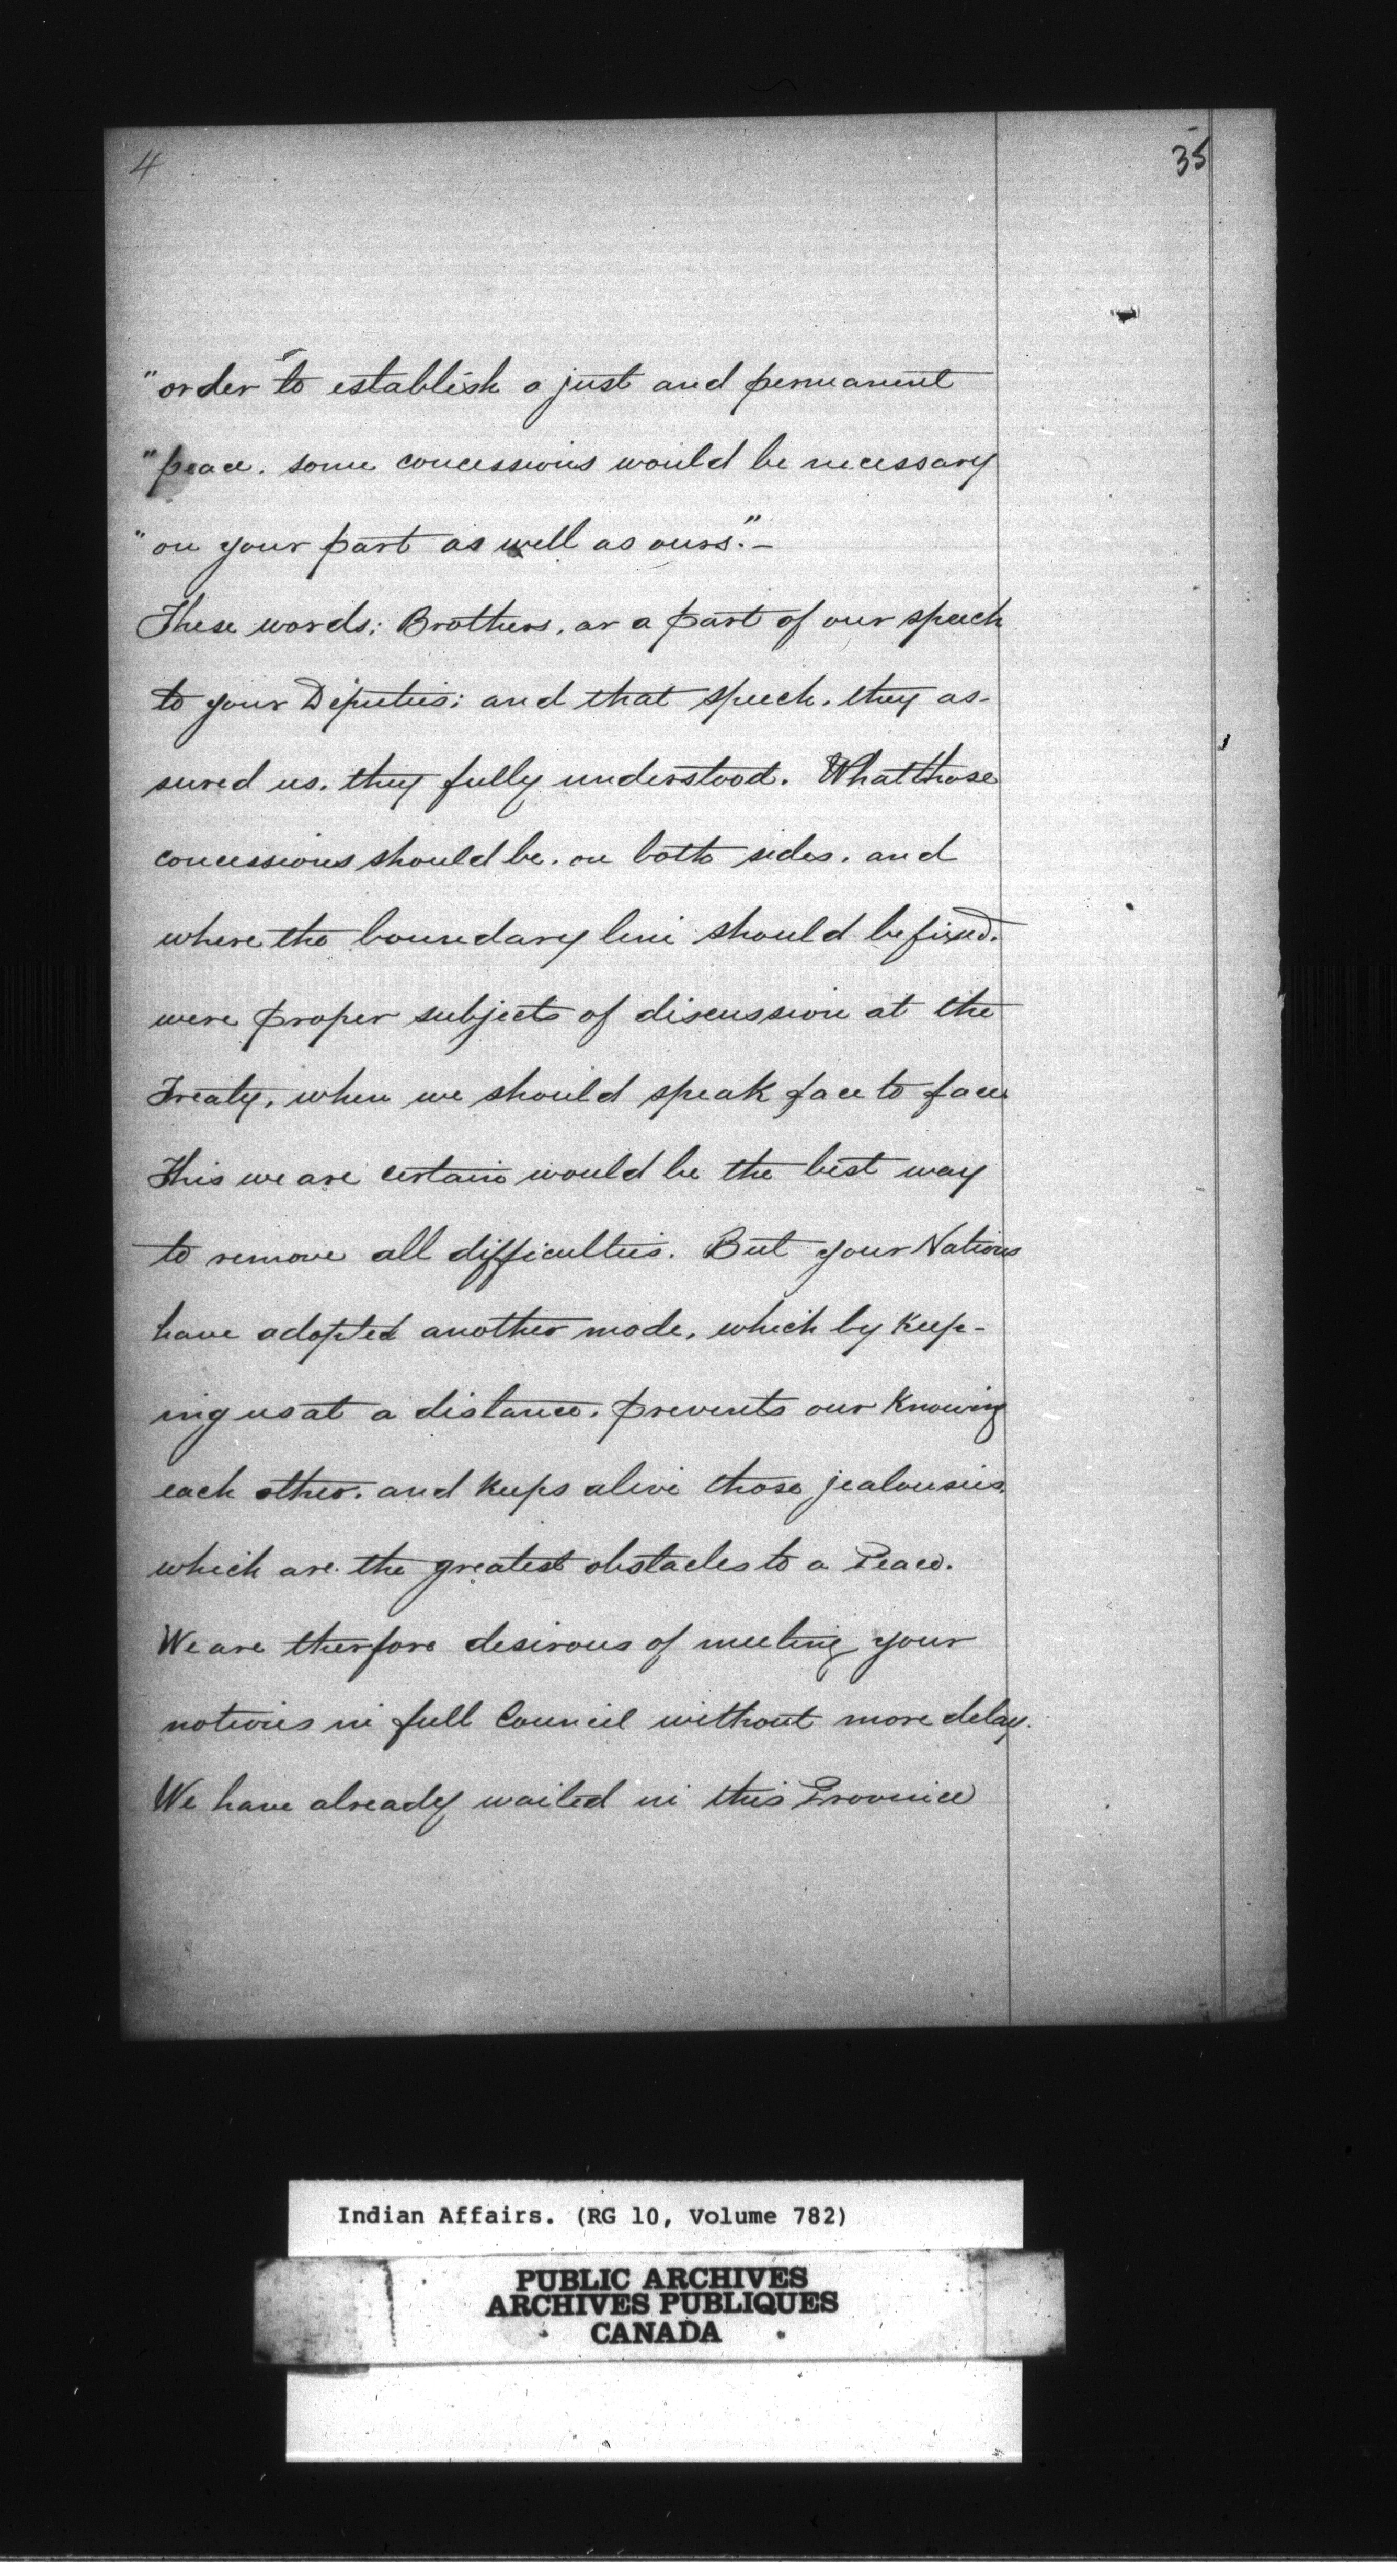 4
35
"order to establish a just and permanent
"peace. some concessions would be necessary
"on your part as well as ours."—
These words; Brothers, ar a part of our speech
to your Deputies; and that speech, they as-
sured us, they fully understood. What those
concessions should be, on both sides, and
where the boundary line should be fixed.
were proper subjects of discussion at the
Treaty, when we should speak face to face
This we are certain would be the best way
to remove all difficulties. But your Nations
have adopted another mode, which by keep-
ing us at a distance, prevents our knowing
each other, and keeps alive those jealousies,
which are the greatest obstacles to a Peace.
We are therfore desirous of meeting your
nations in full Council without more delay.
We have already waited in this Province
Indian Affairs. (RG 10, Volume 782)
PUBLIC ARCHIVES
ARCHIVES PUBLIQUES
CANADA